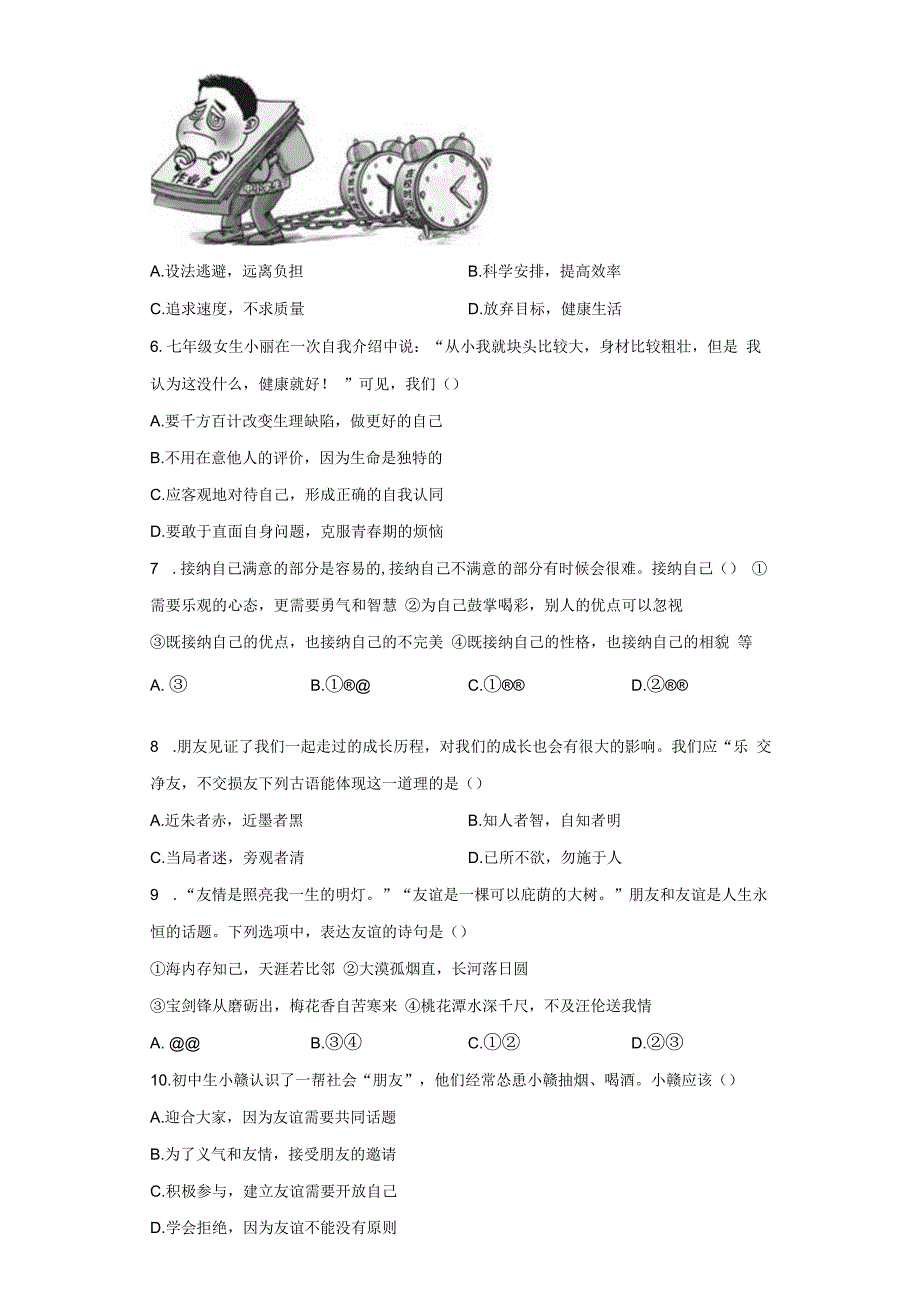 作业多
A.设法逃避，远离负担 B.科学安排，提高效率
C.追求速度，不求质量 D.放弃目标，健康生活
6. 七年级女生小丽在一次自我介绍中说：“从小我就块头比较大，身材比较粗壮，但是 我
认为这没什么，健康就好！ ”可见，我们（）
A.要千方百计改变生理缺陷，做更好的自己
B.不用在意他人的评价，因为生命是独特的
C.应客观地对待自己，形成正确的自我认同
D.要敢于直面自身问题，克服青春期的烦恼
7 .接纳自己满意的部分是容易的,接纳自己不满意的部分有时候会很难。接纳自己（） ①
需要乐观的心态，更需要勇气和智慧 ②为自己鼓掌喝彩，别人的优点可以忽视
③既接纳自己的优点，也接纳自己的不完美 ④既接纳自己的性格，也接纳自己的相貌 等
A. ③ B.①®@ C.①®® D.②®®
8 .朋友见证了我们一起走过的成长历程，对我们的成长也会有很大的影响。我们应“乐 交
净友，不交损友下列古语能体现这一道理的是（）
A.近朱者赤，近墨者黑 B.知人者智，自知者明
C.当局者迷，旁观者清 D.已所不欲，勿施于人
9 .“友情是照亮我一生的明灯。”“友谊是一棵可以庇荫的大树。”朋友和友谊是人生永
恒的话题。下列选项中，表达友谊的诗句是（）
①海内存知己，天涯若比邻 ②大漠孤烟直，长河落日圆
③宝剑锋从磨砺出，梅花香自苦寒来 ④桃花潭水深千尺，不及汪伦送我情
A. @@ B.③④ C.①② D.②③
10.初中生小赣认识了一帮社会“朋友”，他们经常怂恿小赣抽烟、喝酒。小赣应该（）
A.迎合大家，因为友谊需要共同话题
B.为了义气和友情，接受朋友的邀请
C.积极参与，建立友谊需要开放自己
D.学会拒绝，因为友谊不能没有原则